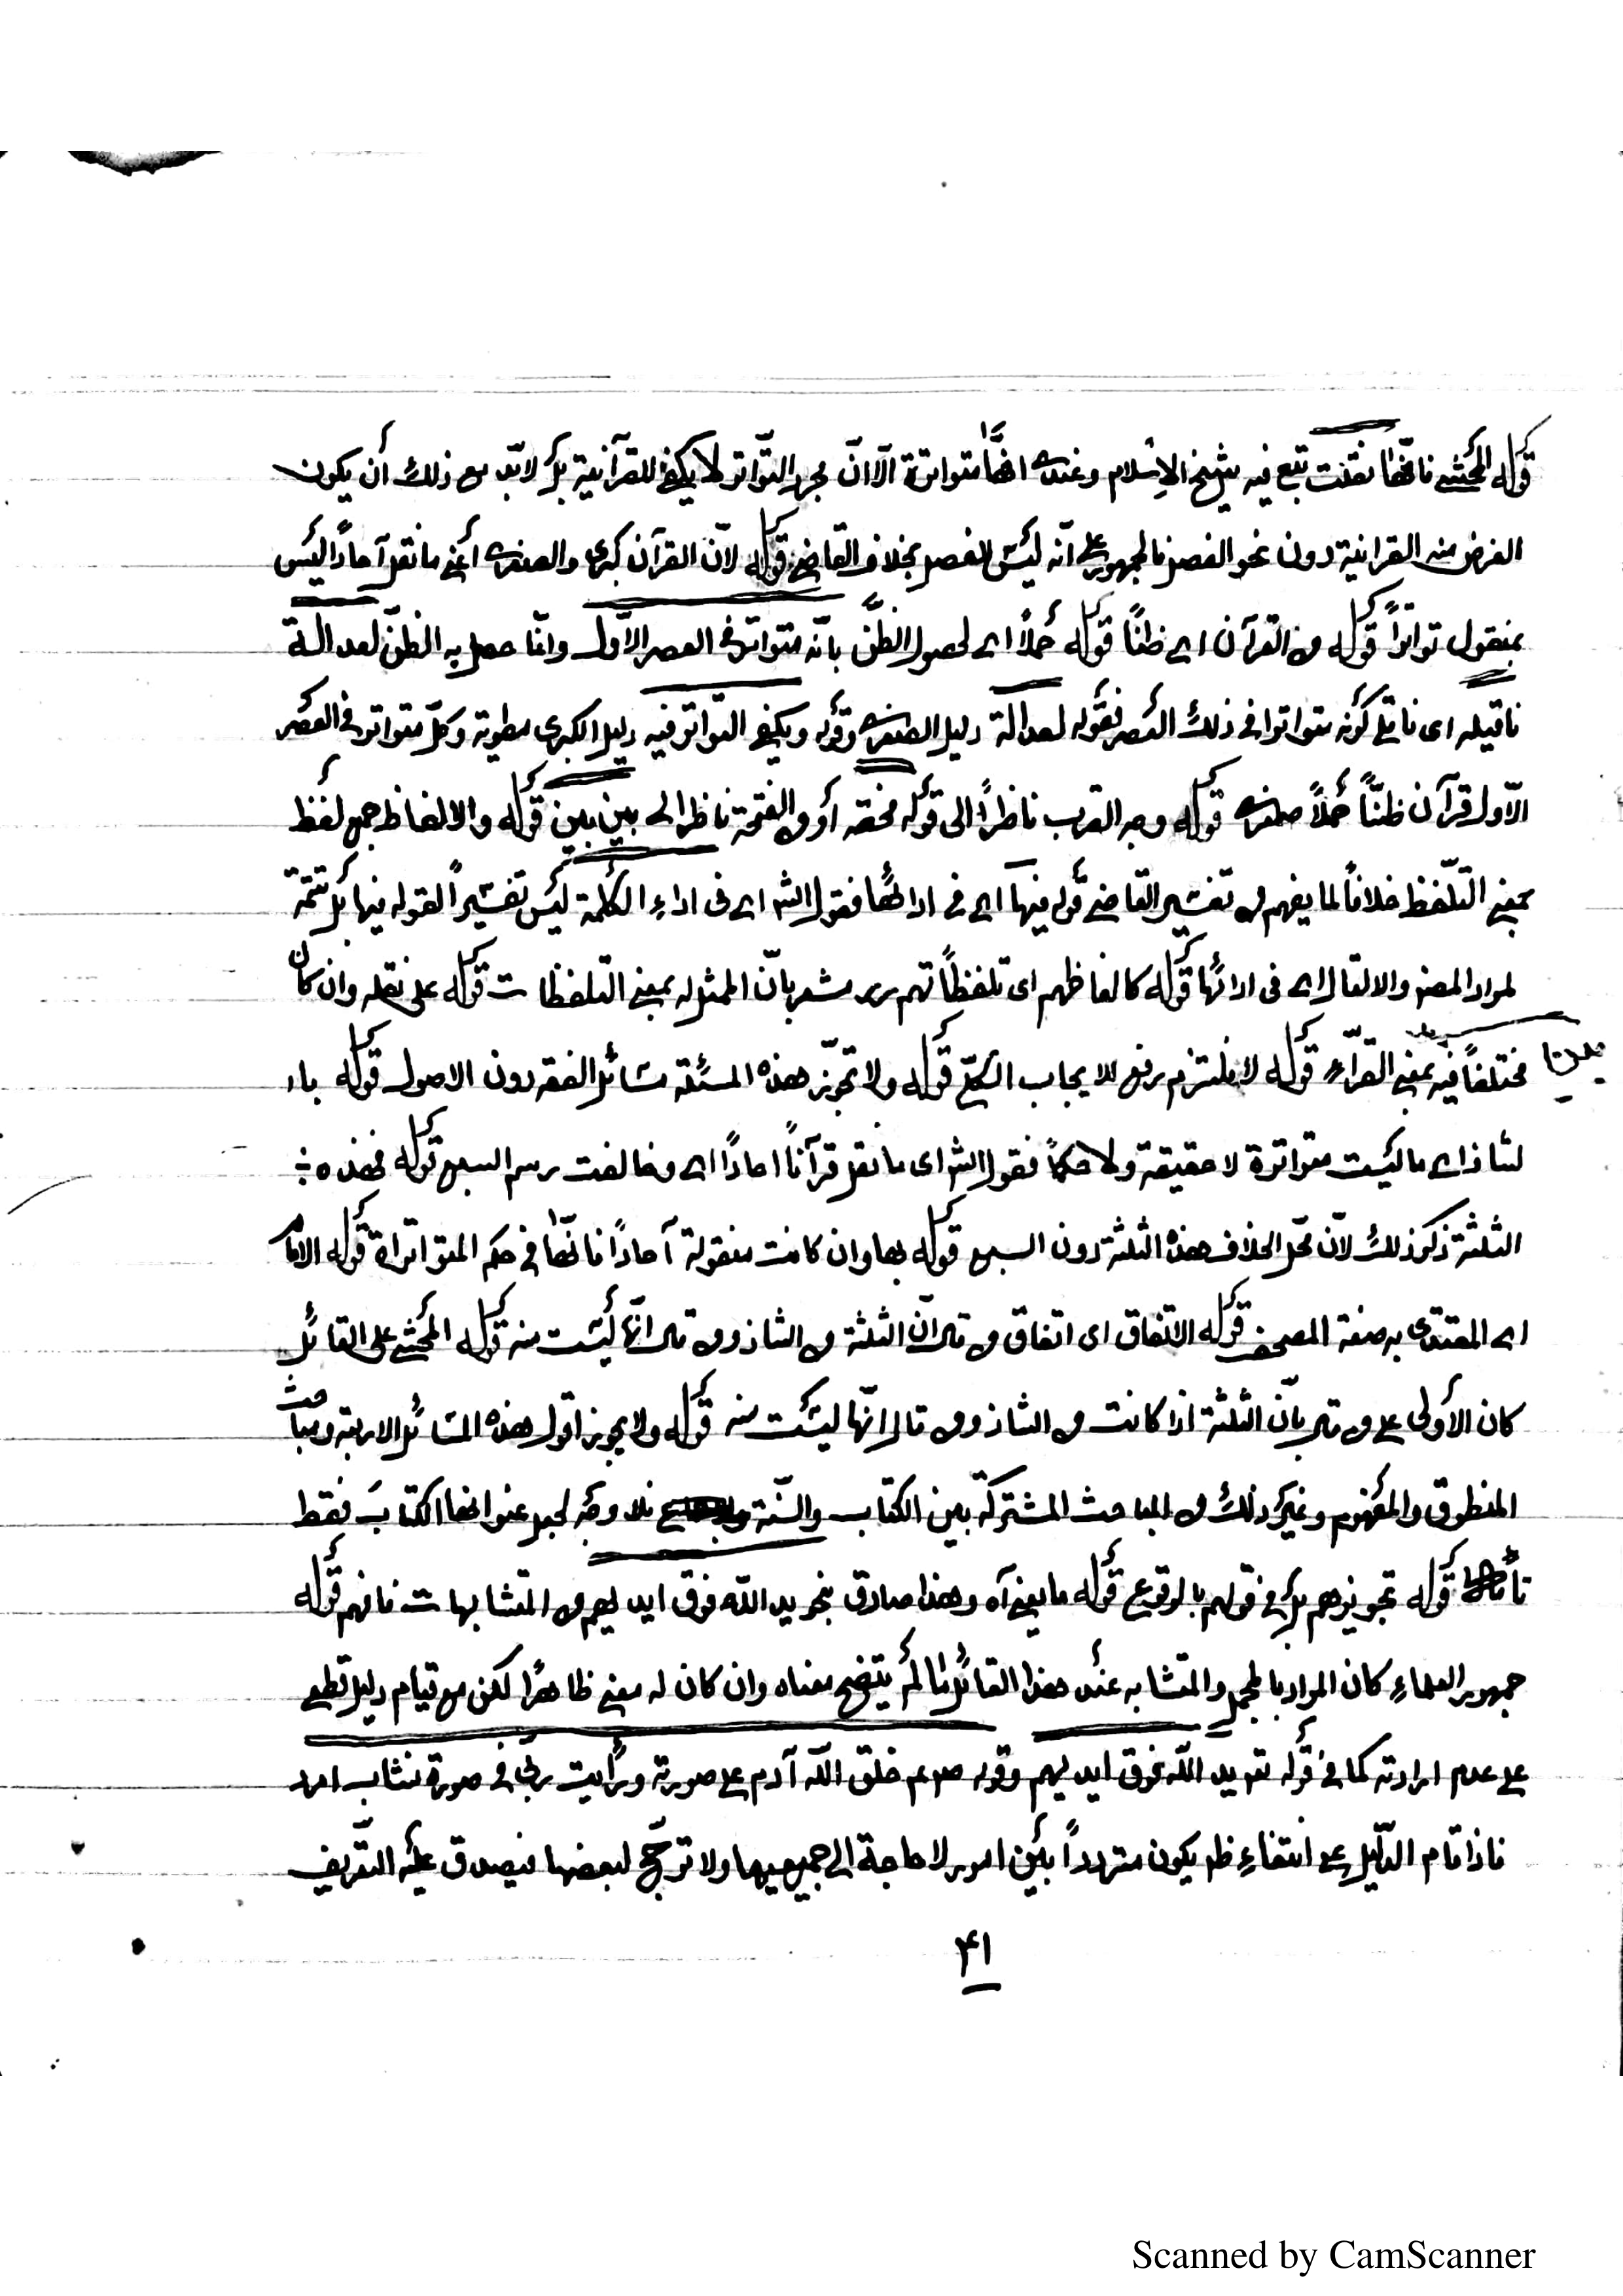 قوله المحشي فانها نقلت تبع فيه شيخ الاسلام وعنده انها متواترة الّا انّ مجرد التّواتر لا يكفي للقرآنية بل لابّد مع ذلك أن يكون
الغرض منه القرانية دون نحو الفصل فالجمهور على انّه ليس للفصل بخلاف القاضي قوله لانّ القرآن كبرى والصغرى أعني ما نقل آحادًا ليس
بمنقول تواترًا قوله من القرآن اي ظنًّا قوله حملًا اي لحصول الظنّ بانّه متواتر في العصر الاوّل وانّما حصل به الظنّ لعدالة
ناقيله اى ناقلي كونه متواترا في ذلك العصر فقوله لعدالة دليل الصغرى وقوله ويكفي التواتر فيه دليل الكبرى مطوية وكلّ متواتر في العصر
الاّول قرآن ظنًّا حملًا صغرى قوله وجه القرب ناظرًا الى قوله محققه أو من الفتحة ناظر الى بين بين قوله والالفاظ جمع لفظ
بمعنى التلّفظ خلافًا لما يفهم من تفسير القاضي قوله فيها اي في ادائها فقول الش اي فى اداء الكلمة ليس تفسيرًا لقوله فيها بل تتمة
لمراد المصن والا لقال اي فى ادائها قوله كالفاظهم اى تلفظًاتهم مشعر بانّ الممثل له بمعنى التلفظات قوله على نقله وان كان
مختلفًا فيه بمعنى القرّاء قوله لا يلتزم رفع للايجاب الكلّي قوله ولا تجوّز هذه المسئلة مسائل الفقه دون الاصول قوله با
لشاذ اي ما ليست متواترة لا حقيقة ولا حكمًا فقول الش اى ما نقل قرآنًا احادًا اي وخالفت رسم السبع قوله فهذه
الثلثة ذكر ذلك لانّ محّل الخلاف هذه الثلثة دون السبع قوله بها وان كانت منقولة آحادًا فانّها في حكم المتواترة قوله الامام
اي المقتدى به صفة المصحف قوله الاتفاق اى اتفاق من قال انّ الثلثة من الشاذ ومن قال انّها ليست منه قوله المحشي على القائل
كان الأولى على من قال بانّ الثلثة اذا كانت من الشاذ ومن قال انّها ليست منه قوله ولا يجوز اقول هذه المسائل الاربعة ومباحث
المنطوق والمفهوم وغير ذلك من المباحث المشتركة بين الكتاب والسّنة فلا وجه لجعل عنوانها الكتاب فقط
قوله تجويزهم بل في قولهم بالوقوع قوله ما يعني آه وهذا صادق بنحو يد الله فوق ايديهم من المتشابهات فافهم قوله
جمهور العلماء كان المراد بالمجمل والمتشابه عند هذا القائل ما لم يتضح معناه وان كان له معنى ظاهرًا لكن مع قيام دليل قطعي
على عدم ارادته كما في قوله تعه يد الله فوق ايديهم وقوله صلعم خلق الله آدم على صورته ورأيت ربي في صورة شاب امرد
فاذا قام الدّليل على انتفاء ظه يكون مترددًا بين امور لا حاجة الى جميعها ولا ترجّح لبعضها فيصدق عليه التعّريف
۴۱
Scanned by CamScanner